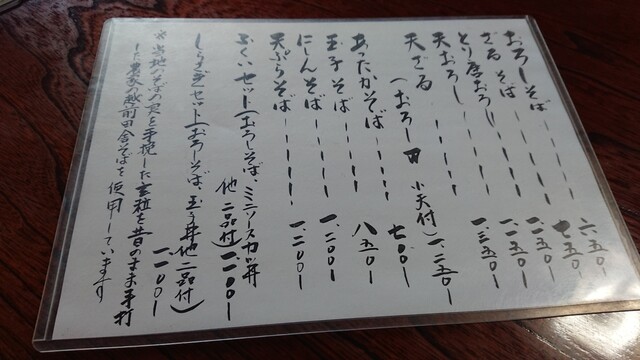 おろしそば 六五〇
ざるそば 七五〇
とり唐おろし 一、二五〇
天おろし 一、二五〇
天ざる
(おろし 小天付) 一、二五〇
あったかそば 七〇〇
玉子そば 八五〇
にしんそば 一、二〇〇
天ぷらそば 一、二〇〇
ふくいセット(おろしそば、ミニソースカツ丼
他二品付) 一、二〇〇
しらぎセット(おろしそば、玉子丼他二品付)
一、二〇〇
※当地のそばの実を手挽した玄粒を昔のまま手打
した農家の越前田舎そばを使用しています